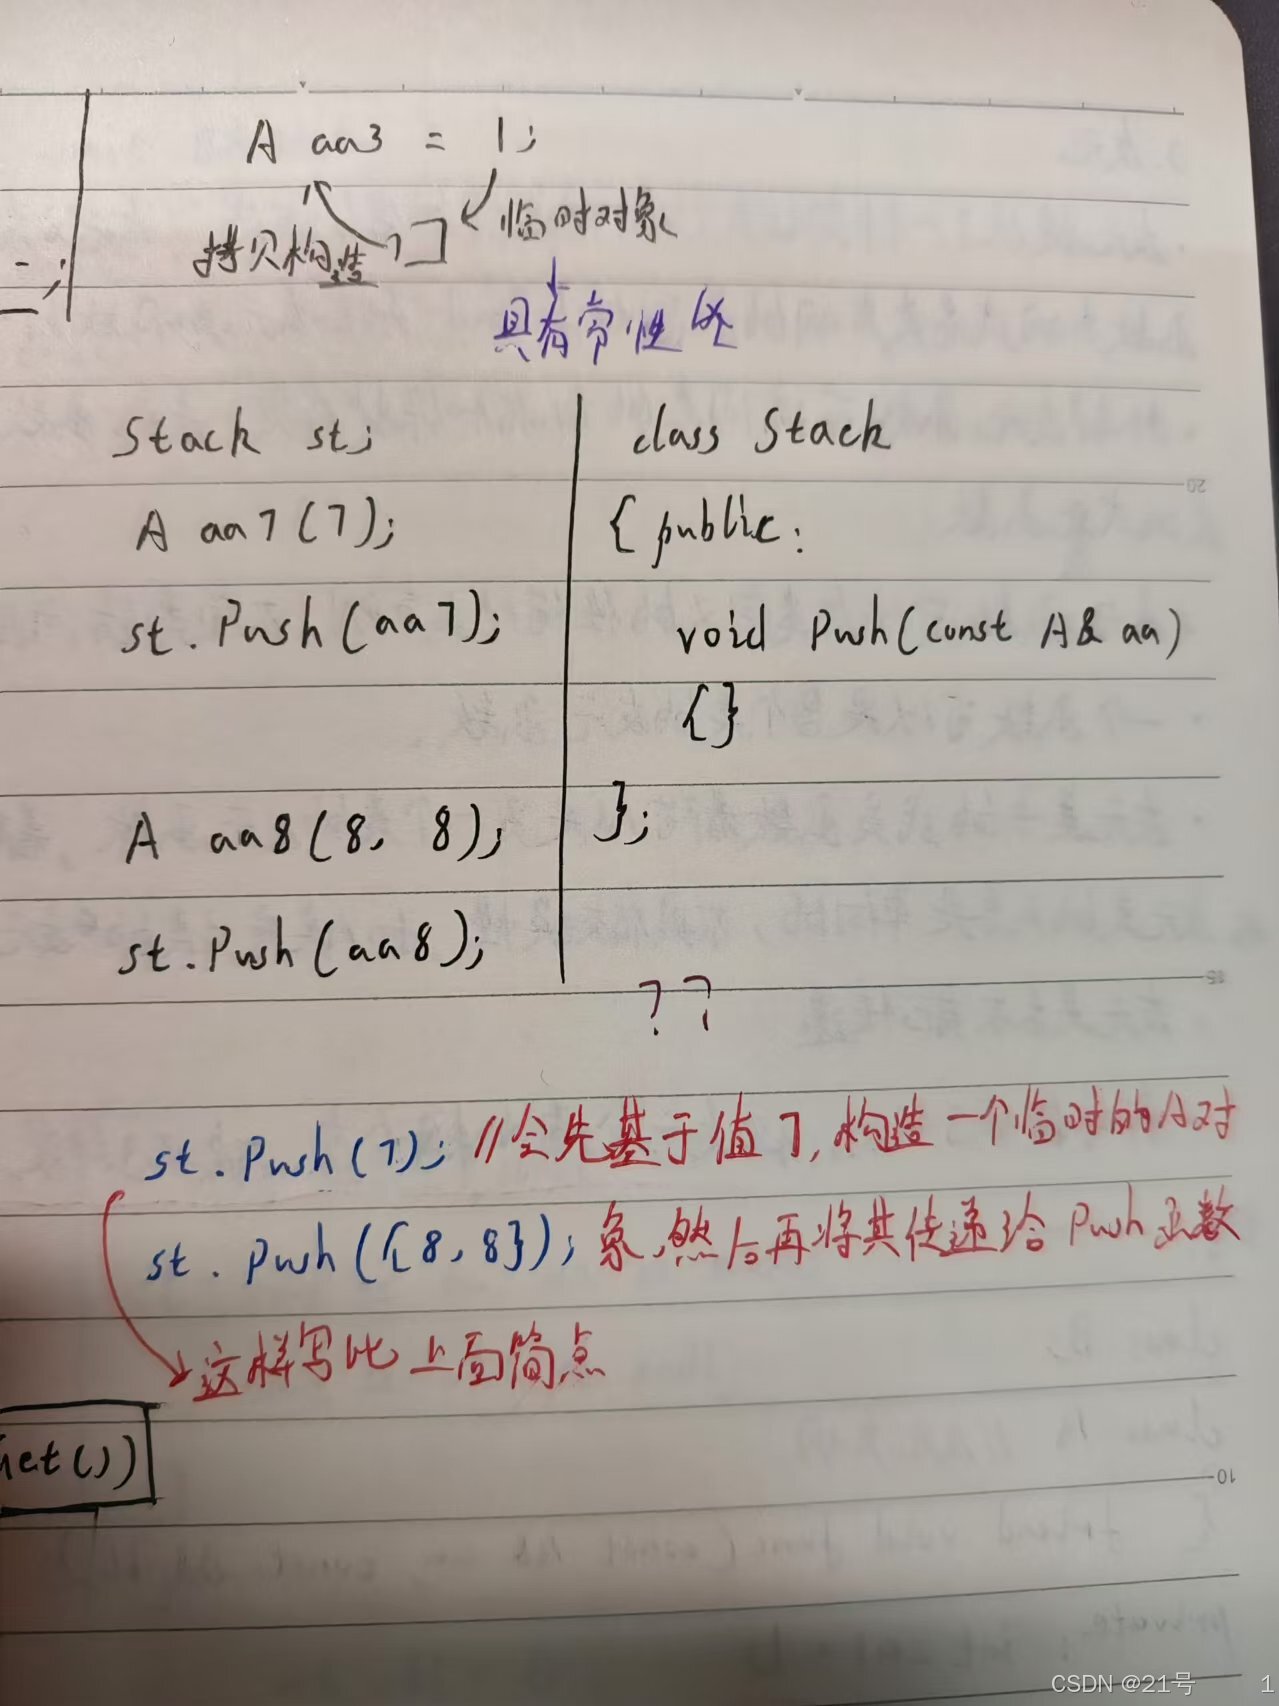 A aa3 = 1;
临时对象
拷贝构造
具有常性的
Stack st;
A aa7(7);
st.Push(aa7);
A aa8(8, 8);
st.Push(aa8);
class Stack
{ public:
void Push(const A& aa)
{}
};
??
st.Push(7); //会先基于值7,构造一个临时的A对
st.Push({8,8}); 象,然后再将其传递给Push函数
这样写比上面简点
et())
CSDN @21号 1